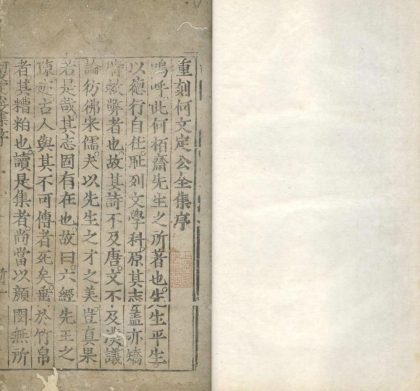 重刻何文定公全集序
嗚呼此何栢齋先生之所著也先生平生
以德行自任耻列文學科原其志盖亦矯
時救弊者也故其詩不及唐文不及漢議
論彷彿宋儒夫以先生之才之美豈真果
若是哉其志固有在也故曰六經先王之
陳迹古人與其不可傳者死矣垂於竹帛
者其糟粕也讀是集者尚當以顔閔無所